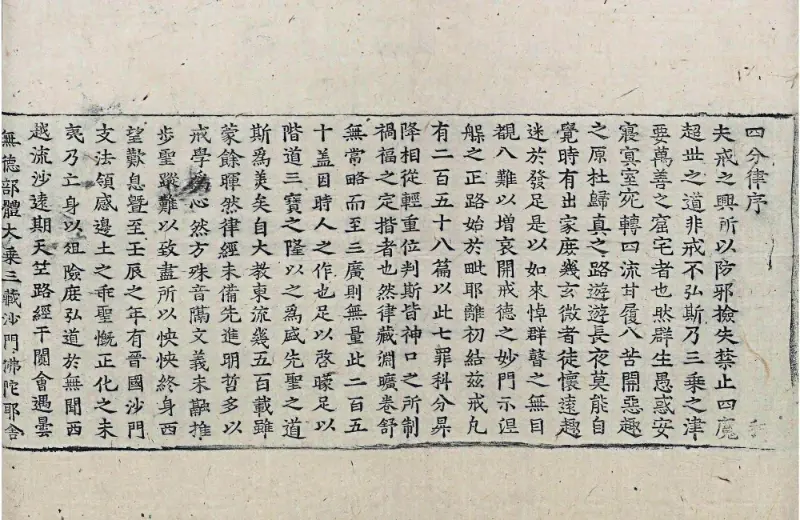 四分律序
夫戒之興所以防邪撿失禁止四魔
超世之道非戒不弘斯乃三乘之津
要萬善之窟宅者也然群生愚惑安
寢冥室宛轉四流甘履八苦開惡趣
之原杜歸真之路遊遊長夜莫能自
覺時有出家庶幾玄微者徒懷遠趣
迷於發足是以如來悼群瞽之無目
覩八難以增哀開戒德之妙門示涅
槃之正路始於毗耶離初結茲戒凡
有二百五十八篇以此七罪科分昇
降相從輕重位判斯皆神口之所制
禍福之定揩者也然律藏淵曠卷舒
無常略而至三廣則無量此二百五
十盖因時人之作也足以啓曚足以
階道三寶之隆以之爲盛先聖之道
斯爲美矣自大教東流幾五百載雖
蒙餘暉然律經未備先進明哲多以
戒學爲心然方殊音隔文義未融推
步聖蹤難以致盡所以怏怏終身西
望歎息曁至壬辰之年有晉國沙門
支法領感邊土之乖聖慨正化之未
夷乃亡身以俎險庶弘道於無聞西
越流沙遠期天竺路經于闐會遇曇
無德部體大乘三藏沙門佛陀耶舍